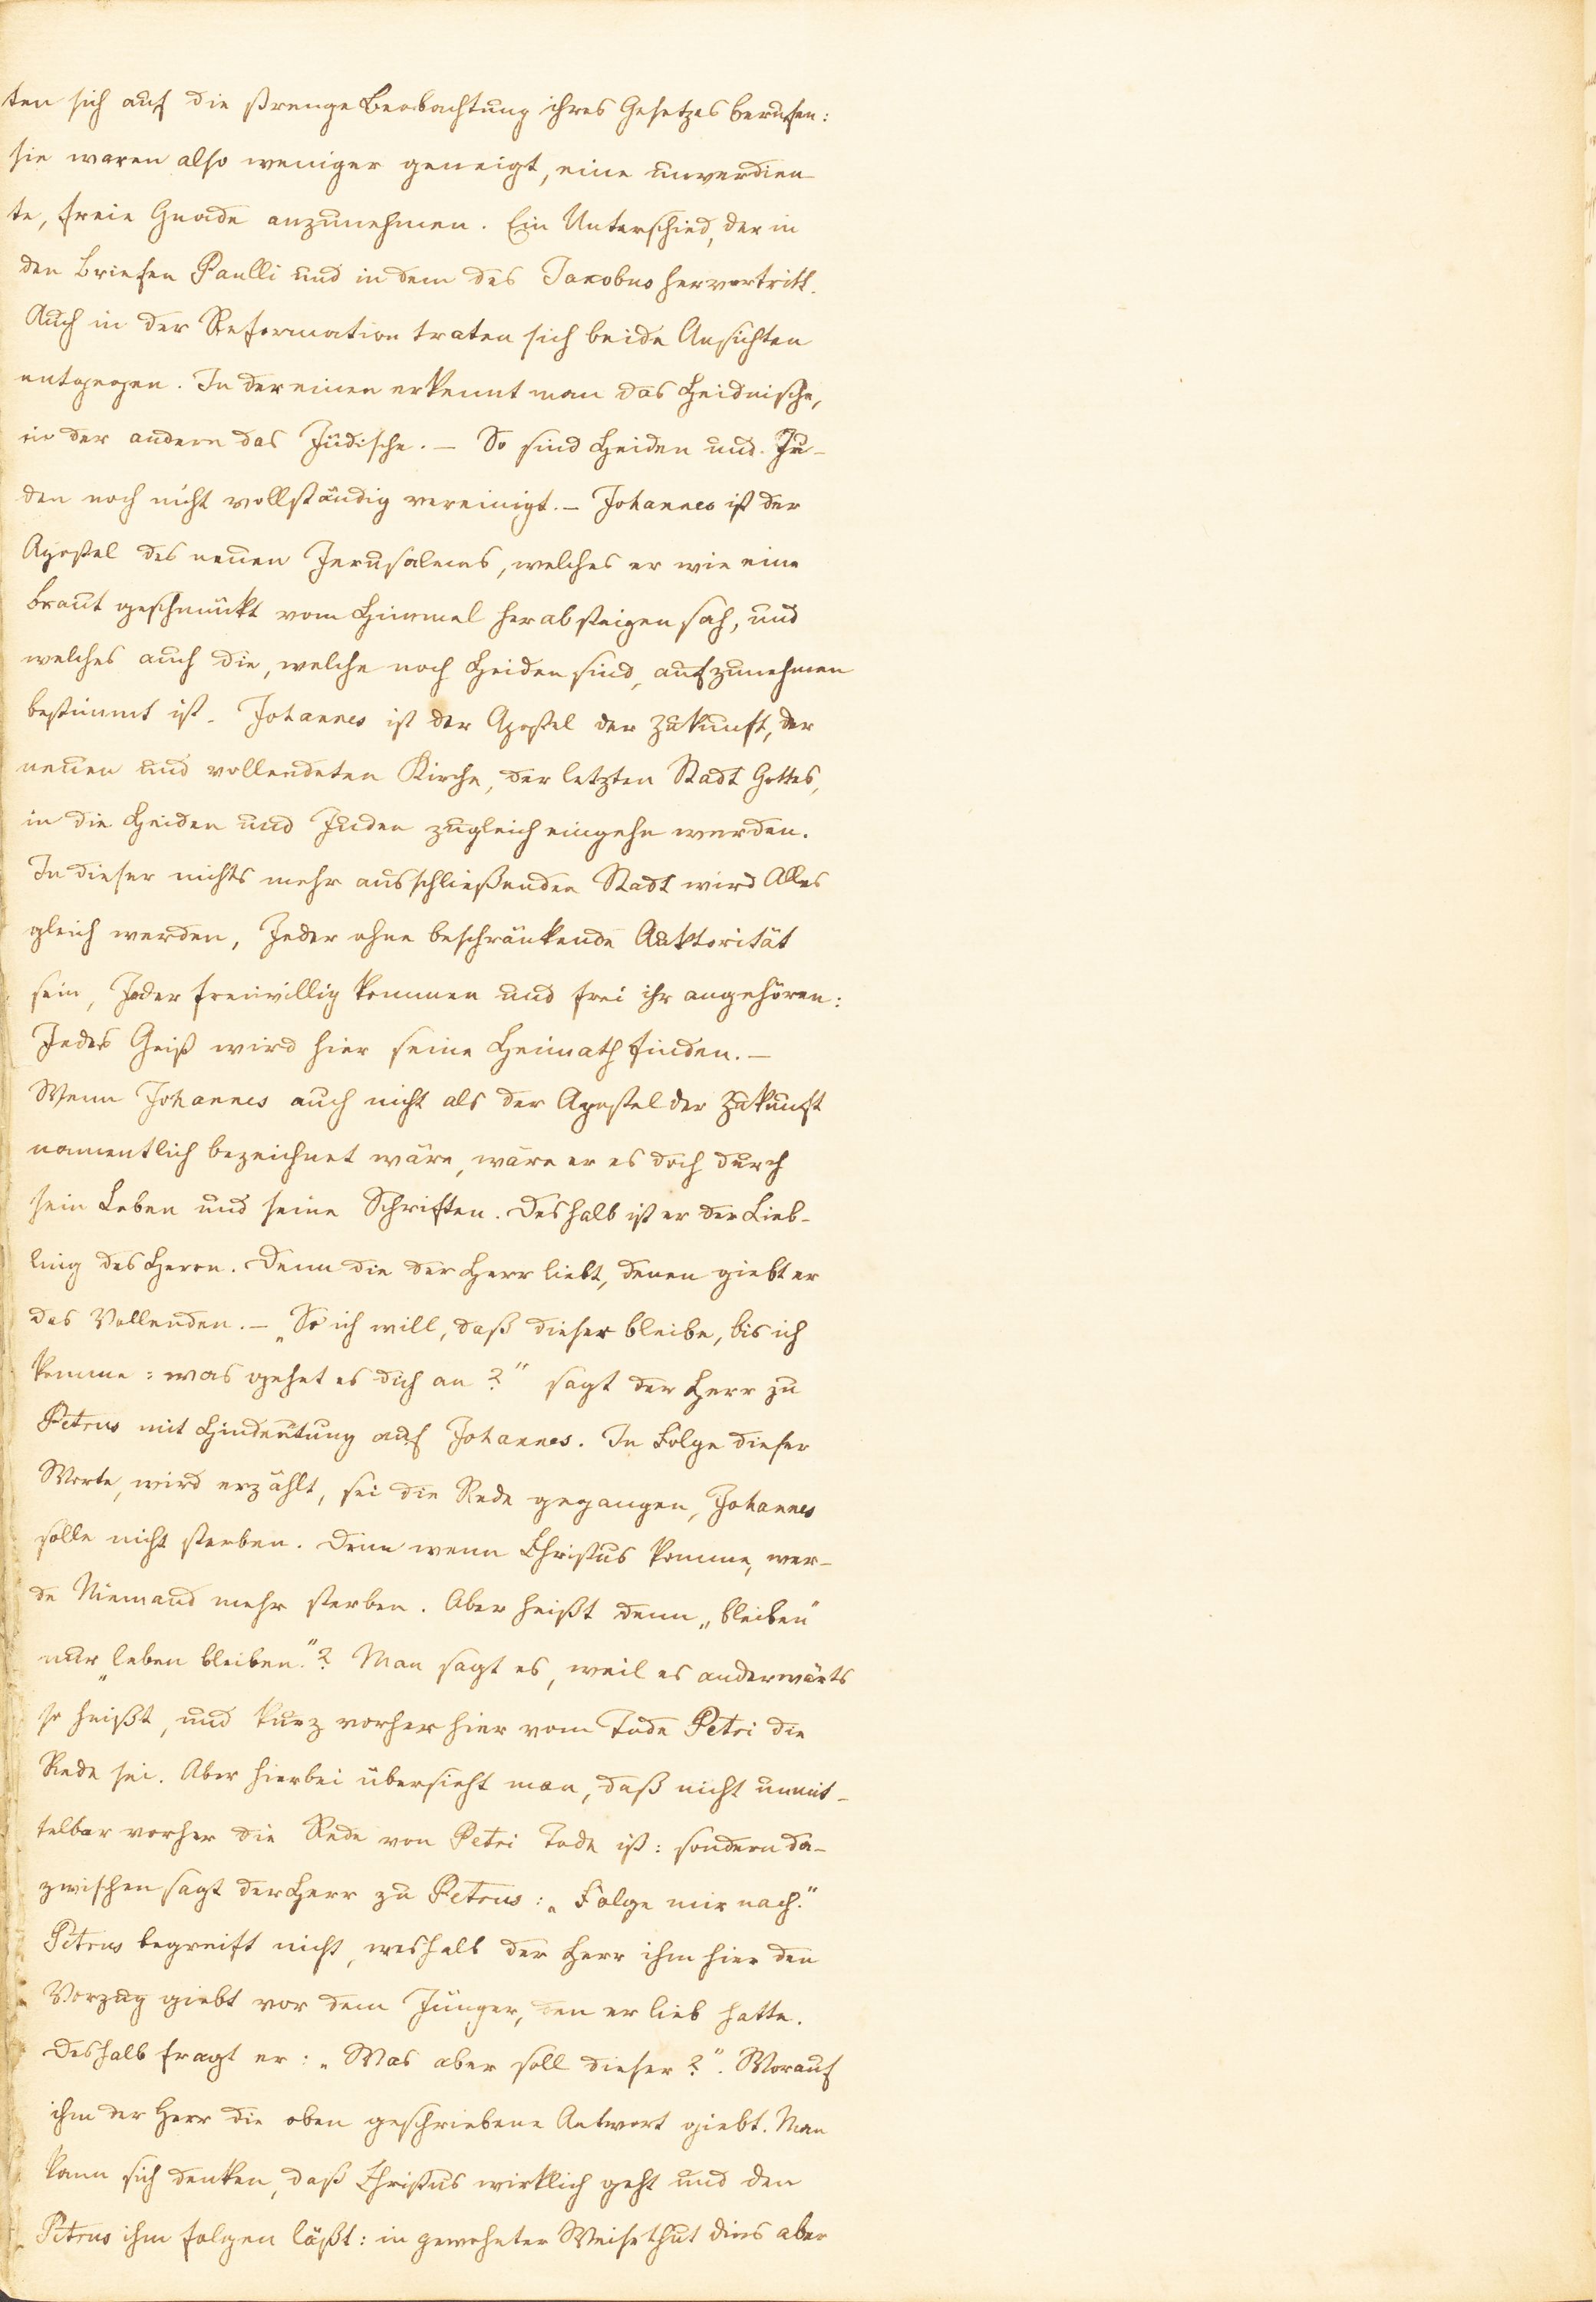 ten sich auf die strenge Beobachtung ihres Gesetzes berufen:
sie waren also weniger geneigt, eine unverdien-
te, freie Gnade anzunehmen. Ein Unterschied, der in
den Briefen Paulli und in dem des Jacobus hervortritt.
Auch in der Reformation traten sich beide Ansichten
entgegen. In der einen erkennt man das Heidnische,
in der andern das Jüdische. – So sind Heiden und Ju-
den noch nicht vollständig vereinigt. – Johannes ist der
Apostel des neuen Jerusalems, welches er wie eine
Braut geschmückt vom Himmel herabsteigen sah, und
welches auch die, welche noch Heiden sind, aufzunehmen
bestimmt ist. Johannes ist der Apostel der Zukunft, der
neuen und vollendeten Kirche, der letzten Stadt Gottes,
in die Heiden und Juden zugleich eingehn werden.
In dieser nichts mehr ausschließenden Stadt wird Alles
gleich werden, Jeder ohne beschränkende Auktorität
sein, Jeder freiwillig kommen und frei ihr angehören:
Jeder Geist wird hier seine Heimath finden. –
Wenn Johannes auch nicht als der Apostel der Zukunft
namentlich bezeichnet wäre, wäre er es doch durch
sein Leben und seine Schriften. Deshalb ist er der Lieb-
ling des Herrn. Denn die der Herr liebt, denen giebt er
das Vollenden. – „So ich will, daß dieser bleibe, bis ich
komme: was gehet es dich an?" sagt der Herr zu
Petrus mit Hindeutung auf Johannes. In Folge dieser
Worte, wird erzählt, sei die Rede gegangen, Johannes
solle nicht sterben. Denn wenn Christus komme, wer-
de Niemand mehr sterben. Aber heißt denn „bleiben"
nur „leben bleiben."? Man sagt es, weil es anderwärts
so heißt, und kurz vorher hier vom Tode Petri die
Rede sei. Aber hierbei übersieht man, daß nicht unmit-
telbar vorher die Rede von Petri Tode ist: sondern da-
zwischen sagt der Herr zu Petrus: „Folge mir nach."
Petrus begreift nicht, weshalb der Herr ihm hier den
Vorzug giebt vor dem Jünger, den er lieb hatte.
Deshalb fragt er: „Was aber soll dieser?". Worauf
ihm der Herr die oben geschriebene Antwort giebt. Man
kann sich denken, daß Christus wirklich geht und den
Petrus ihm folgen läßt: in gewohnter Weise thut dies aber